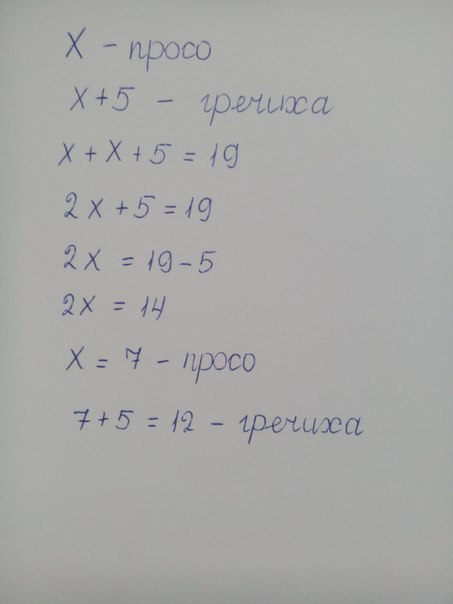 X - просо
X+5 - гречиха
X+X+5=19
2X+5=19
2X = 19-5
2X = 14
X = 7 - просо
7+5 = 12 - гречиха